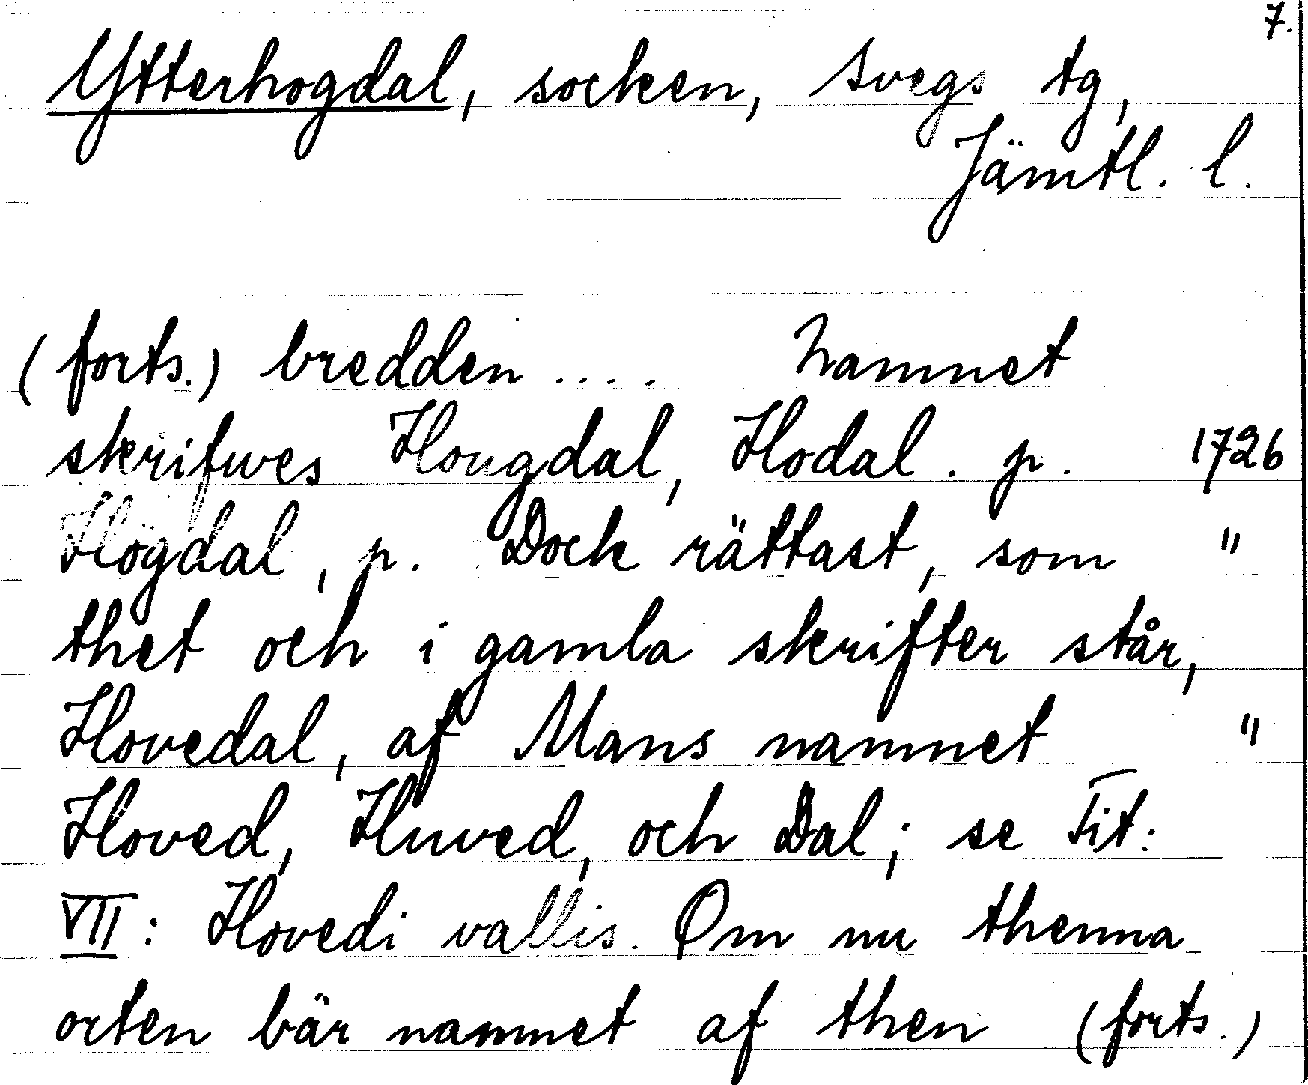 7.
Ytterhogdal, socken, Svegs tg,
Jämtl. l.
(forts.) bredden .... Namnet
skrifwes Hougdal, Hodal. p. 1726
Högdal, p. Dock rättast, som "
thet och i gamla skrifter står,
Hovedal, af Mans namnet "
Hoved, Huved, och Dal; se Tit:
VII: Hovedi vallis. Om nu thenna
orten bär namnet af then (forts.)